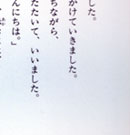 した。
かけていきました。
ちながら、
たたいて、いいました。
んにちは。」